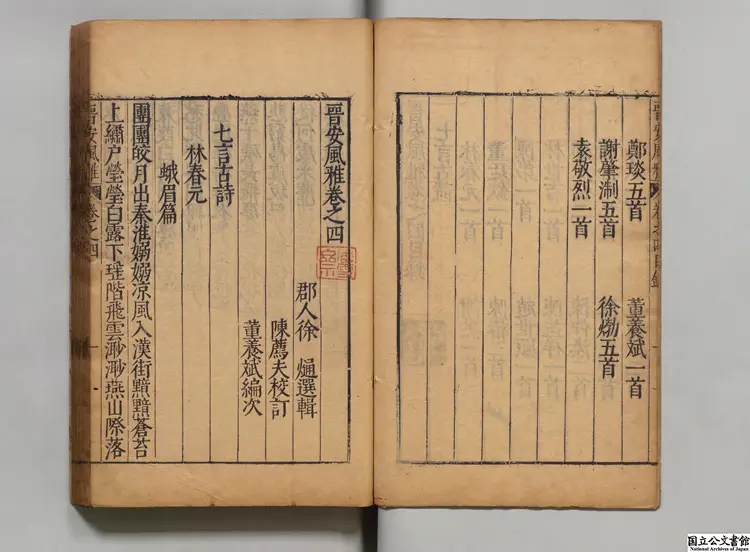 鄭琰五首
董養斌一首
謝肇淛五首
徐㶿五首
袁敬烈一首
晉安風雅卷之四
郡人徐 熥選輯
陳薦夫校訂
董養斌編次
七言古詩
林春元
蛾眉篇
團團皎月出秦淮嫋嫋凉風入漢街黯黯蒼苔
上繡户瑩瑩白露下瑶階飛雲渺渺燕山際落
晉安風雅
卷之四
一
国立公文書館
National Archives of Japan